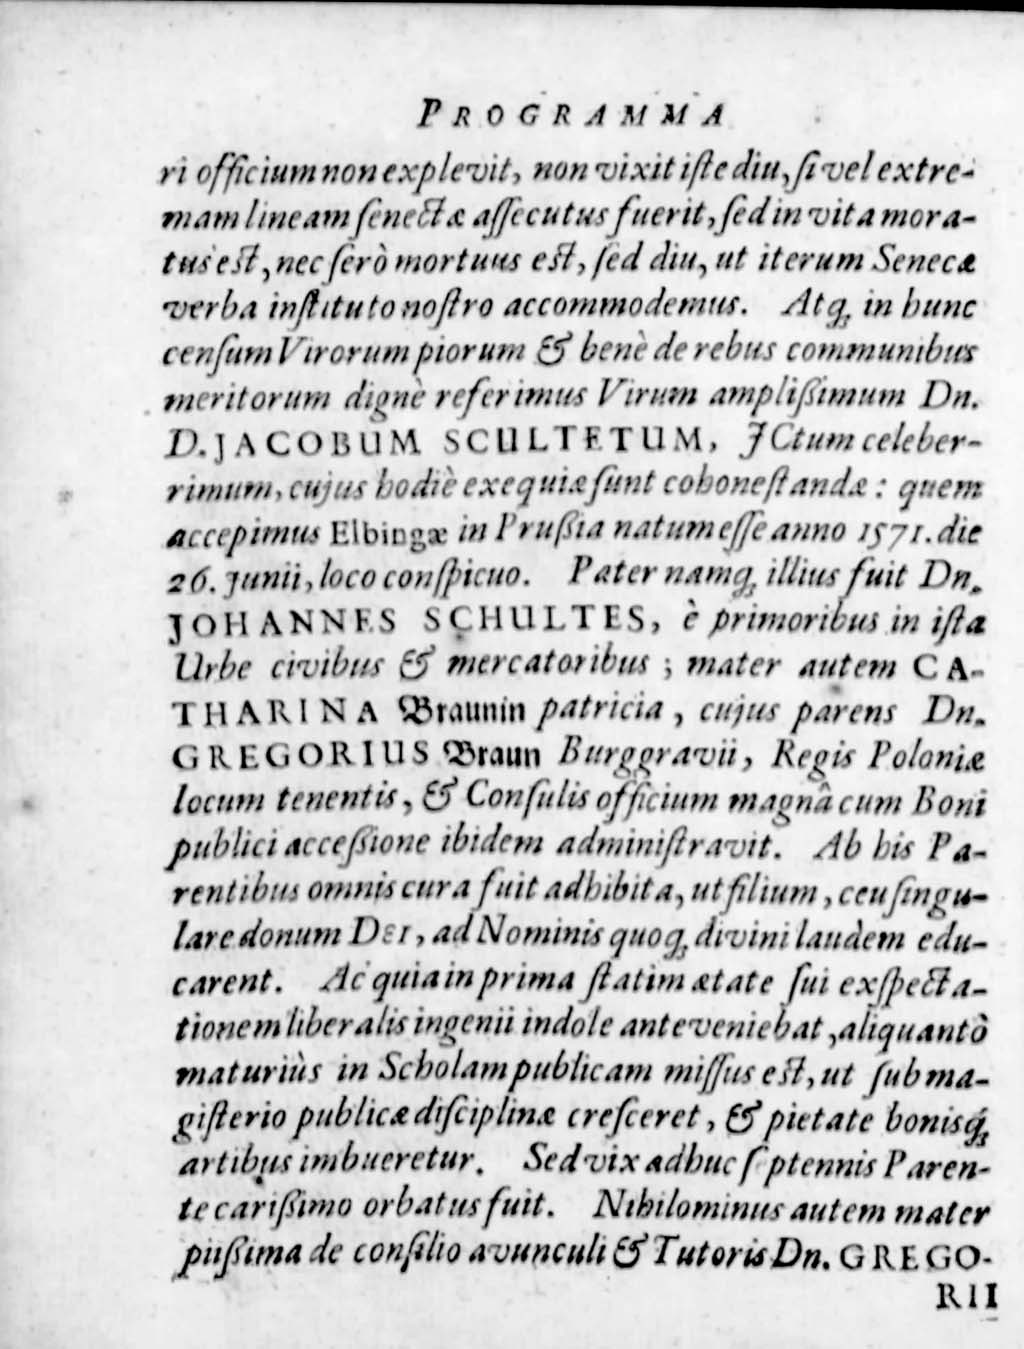 PROGRAMMA
ri officium non explevit, non vixit iſte diu, ſi vel extre-
mam lineam ſenectæ aſſecutus fuerit, ſed in vita mora-
tus eſt, nec ſerò mortuus eſt, ſed diu, ut iterum Senecæ
verba inſtituto noſtro accommodemus. Atq; in hunc
cenſum Virorum piorum & benè de rebus communibus
meritorum dignè referimus Virum ampliſſimum Dn.
D. JACOBUM SCULTETUM, JCtum celeber-
rimum, cujus hodiè exequiæ ſunt cohoneſtandæ: quem
accepimus Elbingæ in Pruſſia natum eſſe anno 1571. die
26. Junii, loco conſpicuo. Pater namq; illius fuit Dn.
JOHANNES SCHULTES, è primoribus in iſta
Urbe civibus & mercatoribus; mater autem CA-
THARINA Braunin patricia, cujus parens Dn.
GREGORIUS Braun Burggravii, Regis Poloniæ
locum tenentis, & Conſulis officium magnâ cum Boni
publici acceſſione ibidem adminiſtravit. Ab his Pa-
rentibus omnis cura fuit adhibita, ut filium, ceu ſingu-
lare donum DEI, ad Nominis quoq; divini laudem edu-
carent. Ac quia in prima ſtatim ætate ſui exſpecta-
tionem liberalis ingenii indole anteveniebat, aliquantò
maturiùs in Scholam publicam miſſus eſt, ut ſub ma-
giſterio publicæ diſciplinæ creſceret, & pietate bonisq́;
artibus imbueretur. Sed vix adhuc ſeptennis Paren-
te cariſſimo orbatus fuit. Nihilominus autem mater
piiſſima de conſilio avunculi & Tutoris Dn. GREGO-
RII